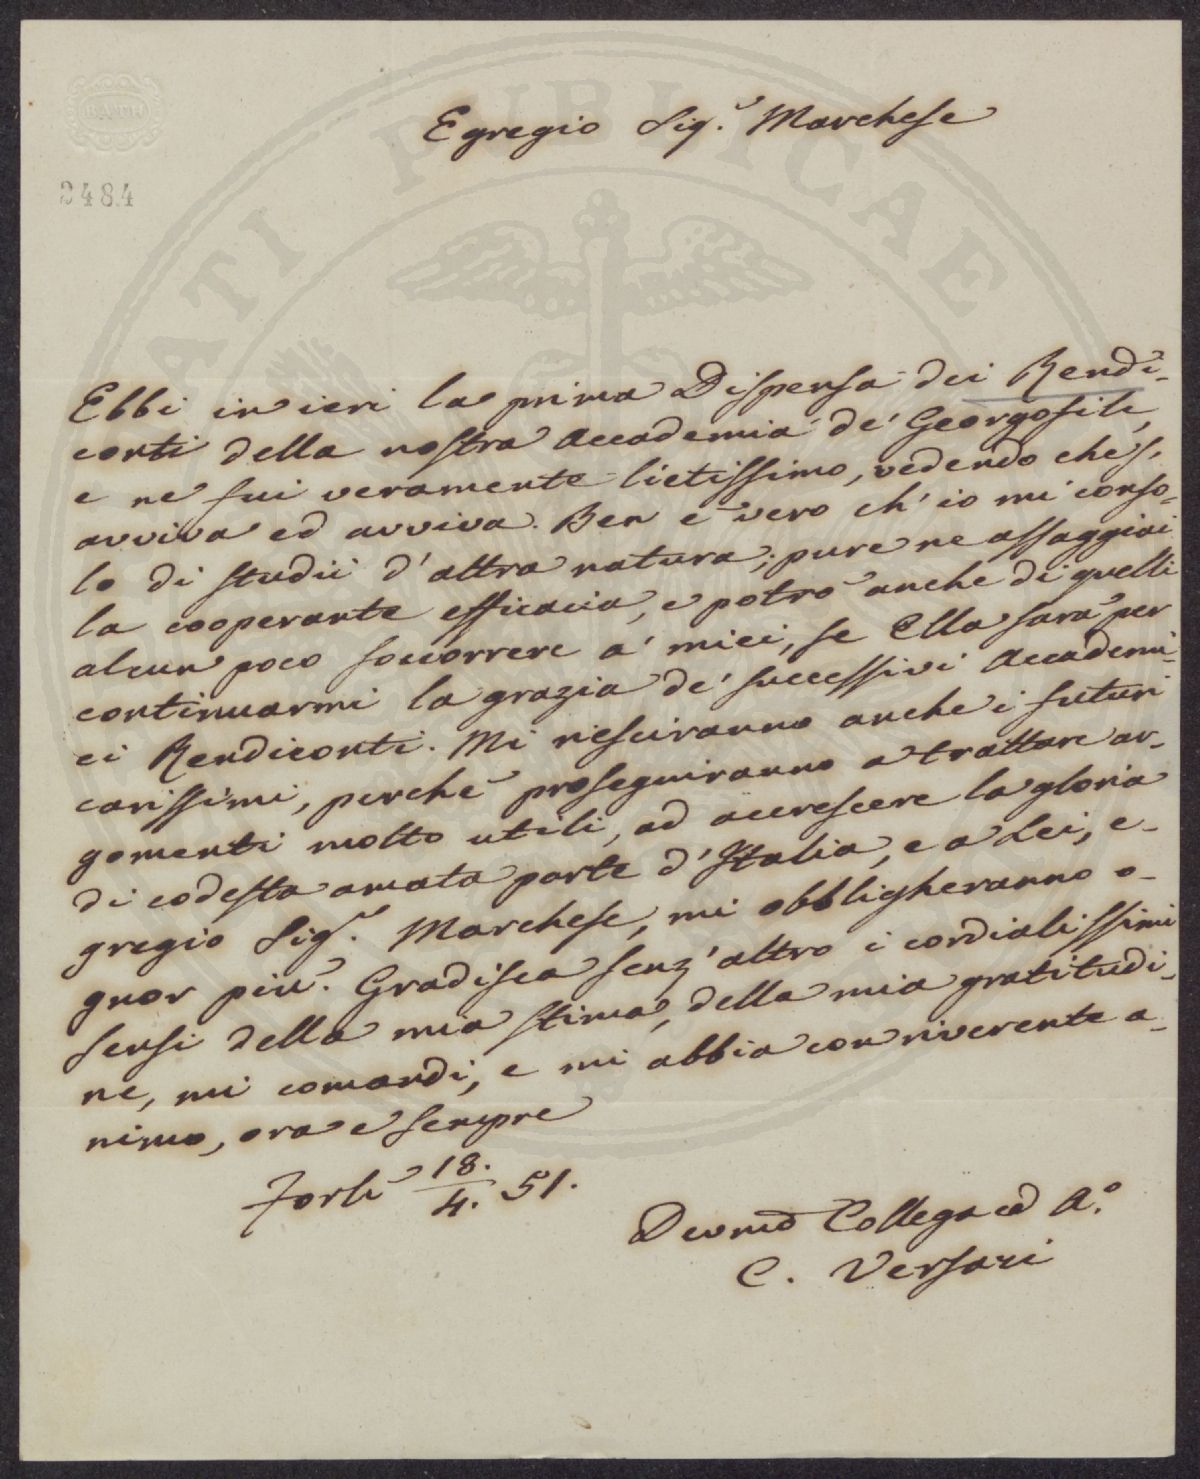 BATH
2484
PUBLICAE
Egregio Sig.r Marchese
Ebbi in ieri la prima Dispensa dei Rendi-
conti della nostra Accademia de' Georgofili,
e ne fui veramente lietissimo, vedendo che s'
avviva ed avviva. Ben è vero ch' io mi conso-
lo di studii d' altra natura; pure ne assaggiai
la cooperante efficacia, e potrò anche di quelli
alcun poco soccorrere a' miei, se Ella sarà per
continuarmi la grazia de' successivi Accademi-
ci Rendiconti. Mi riesciranno anche i futuri
carissimi, perchè proseguiranno a trattare ar-
gomenti molto utili, ad accrescere la gloria
di codesta amata parte d' Italia, e a Lei, e-
gregio Sig.r Marchese, mi obbligheranno o-
gnor più. Gradisca senz' altro i cordialissimi
sensi della mia stima, della mia gratitudi-
ne, mi comandi, e mi abbia con riverente a-
nimo, ora e sempre
Forlì 18./4. 51.
Devmo Collega ed A.o
C. Versari